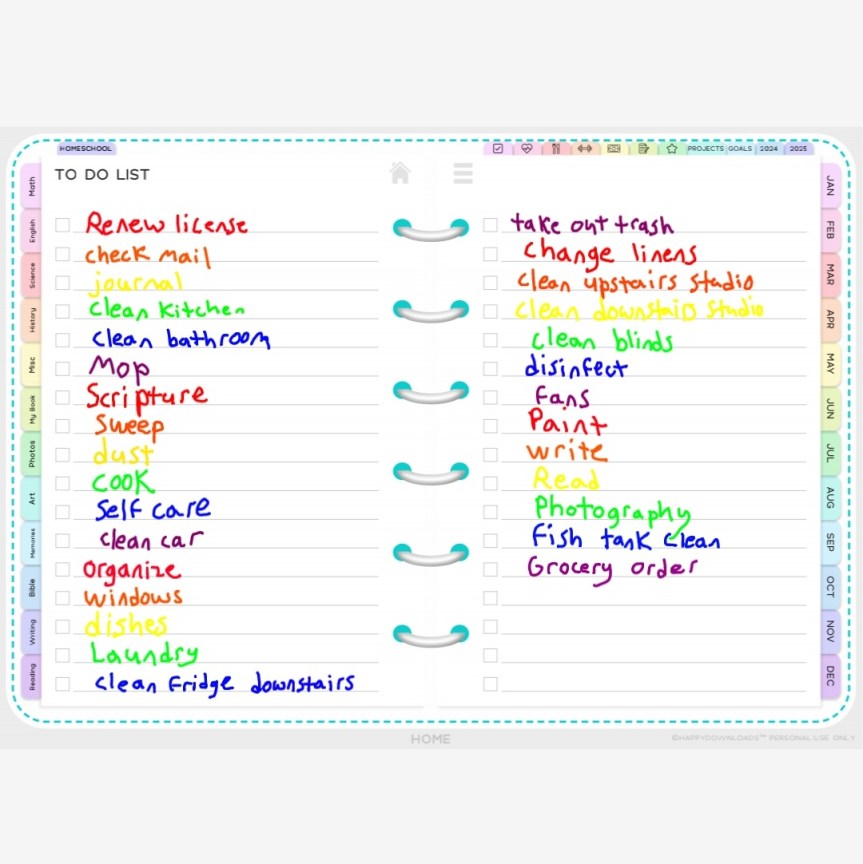 HOMESCHOOL
PROJECTS GOALS 2024 2025
TO DO LIST
Renew license
check mail
journal
clean kitchen
clean bathroom
Mop
Scripture
Sweep
dust
cook
Self care
clean car
organize
windows
dishes
Laundry
clean Fridge downstairs
take out trash
Change linens
clean upstairs studio
clean downstairs studio
clean blinds
disinfect
fans
Paint
write
Read
Photography
Fish tank clean
Grocery order
Math
English
Science
History
Misc
My Book
Photos
Art
Memories
Bible
Writing
Reading
JAN
FEB
MAR
APR
MAY
JUN
JUL
AUG
SEP
OCT
NOV
DEC
HOME
©HAPPYDOWNLOADS™ PERSONAL USE ONLY